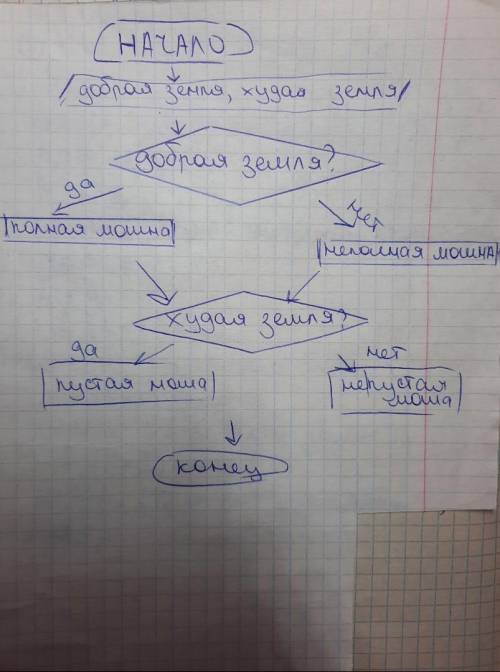 НАЧАЛО
добрая земля, худая земля
добрая земля?
да
нет
полная мошна
неполная мошна
худая земля?
да
нет
пустая моша
непустая
моша
конец